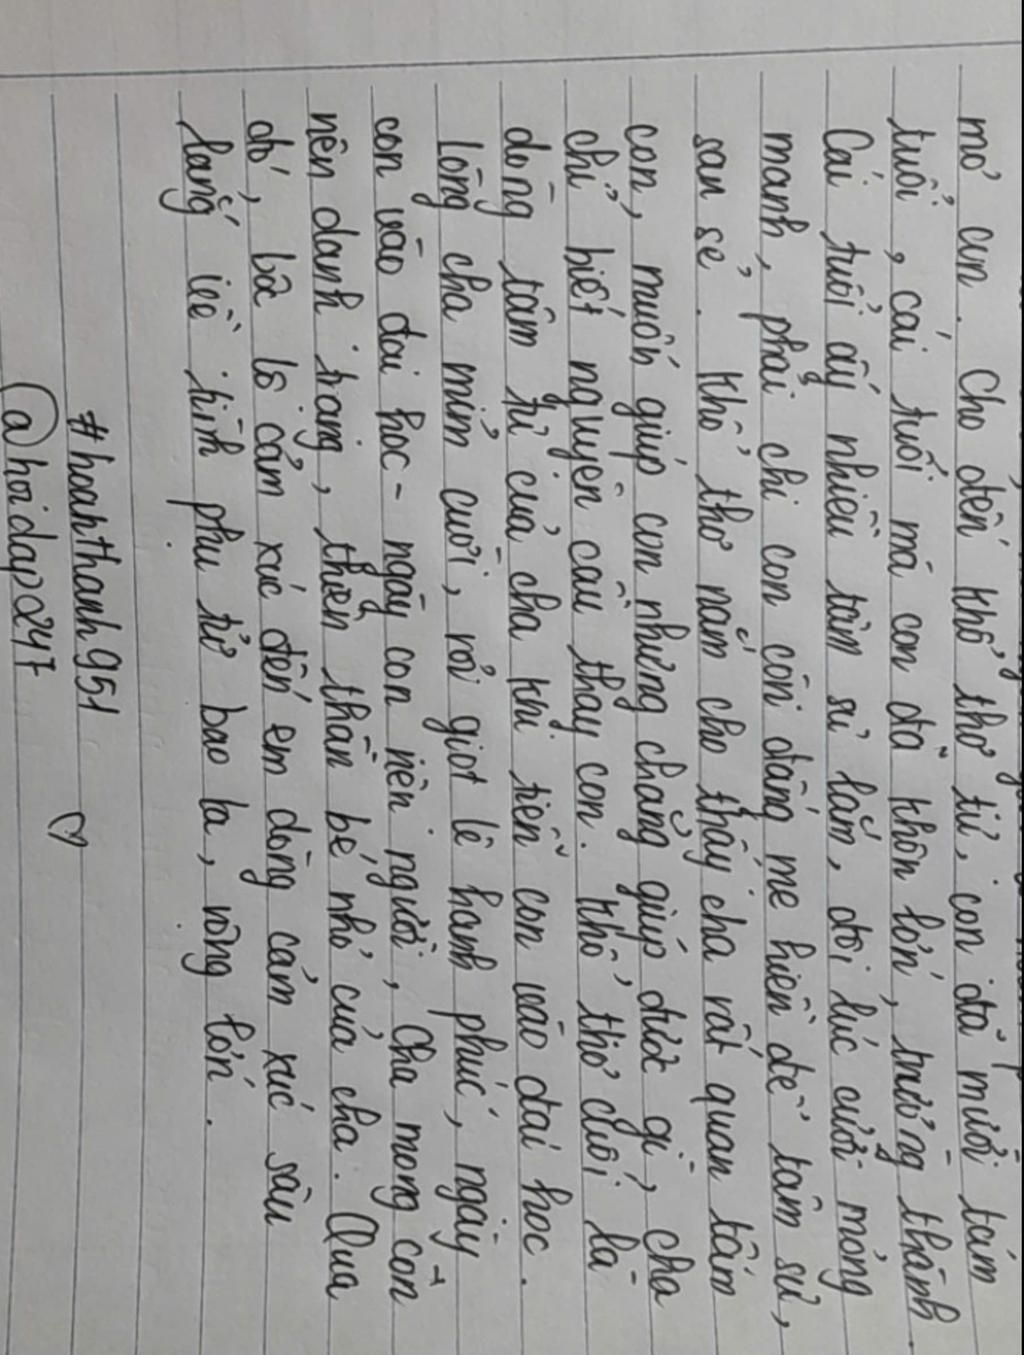 mơ an. Cho đến khổ thơ tư, con đã mười tám
tuổi, cái tuổi mà con đã khôn lớn, trưởng thành.
Cái tuổi ấy nhiều tâm sự lắm, đôi lúc cười mỏng
manh, phải chi con còn đấng mẹ hiền để tâm sự,
san sẻ. Khổ thơ năm cho thấy cha rất quan tâm
con, muốn giúp con nhưng chẳng giúp được gì, cha
chỉ biết nguyện cầu thay con. Khổ thơ cuối là
dòng tâm tư của cha khi tiễn con vào đại học.
Lòng cha mỉm cười, rơi giọt lệ hạnh phúc, ngày
con vào đại học - ngày con nên người, Cha mong con
nên danh trạng, thiên thần bé nhỏ của cha. Qua
đó, bộc lộ cảm xúc đến em dòng cảm xúc sâu
lắng về tình phụ tử bao la, rộng lớn.
#hoanhthanh951
@hoidap247